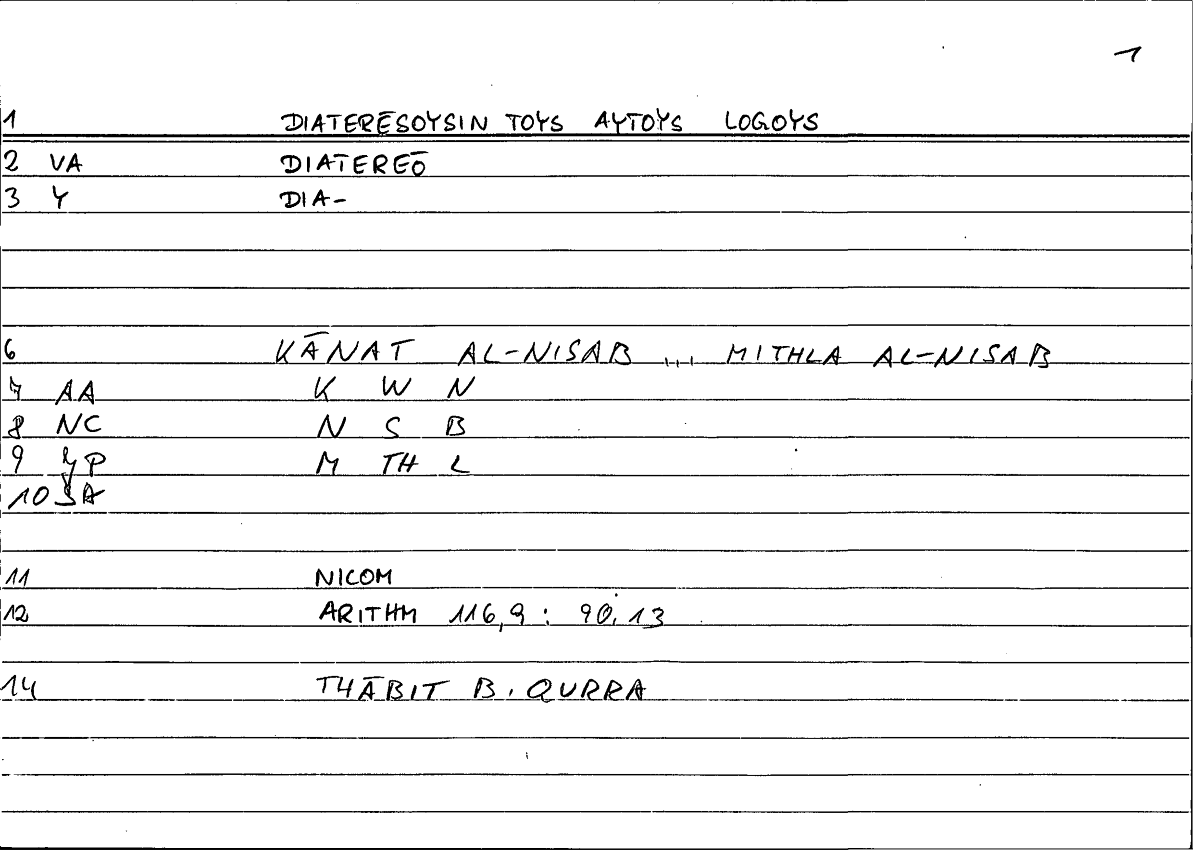 1
1 DIATERĒSOYSIN TOYS AYTOYS LOGOYS
2 VA DIATEREŌ
3 Y DIA-
6 KĀNAT AL-NISAB ... MITHLA AL-NISAB
7 AA K W N
8 NC N S B
9 YP M TH L
10 SA
11 NICOM
12 ARITHM 116,9 : 90.13
14 THĀBIT B. QURRA